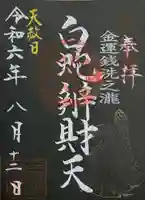 奉拝
金運銭洗之瀧
白蛇辨財天
天赦日
令和六年八月十二日